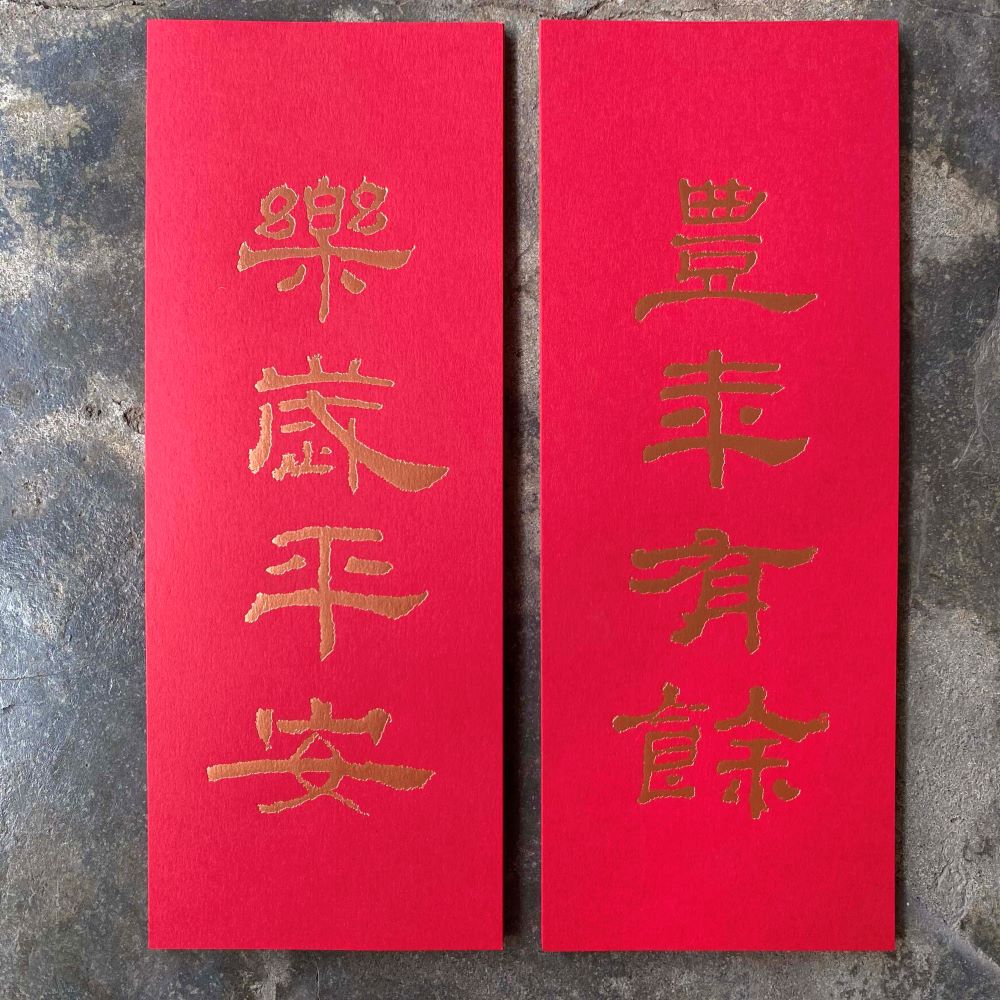 豊年有餘
樂歲平安